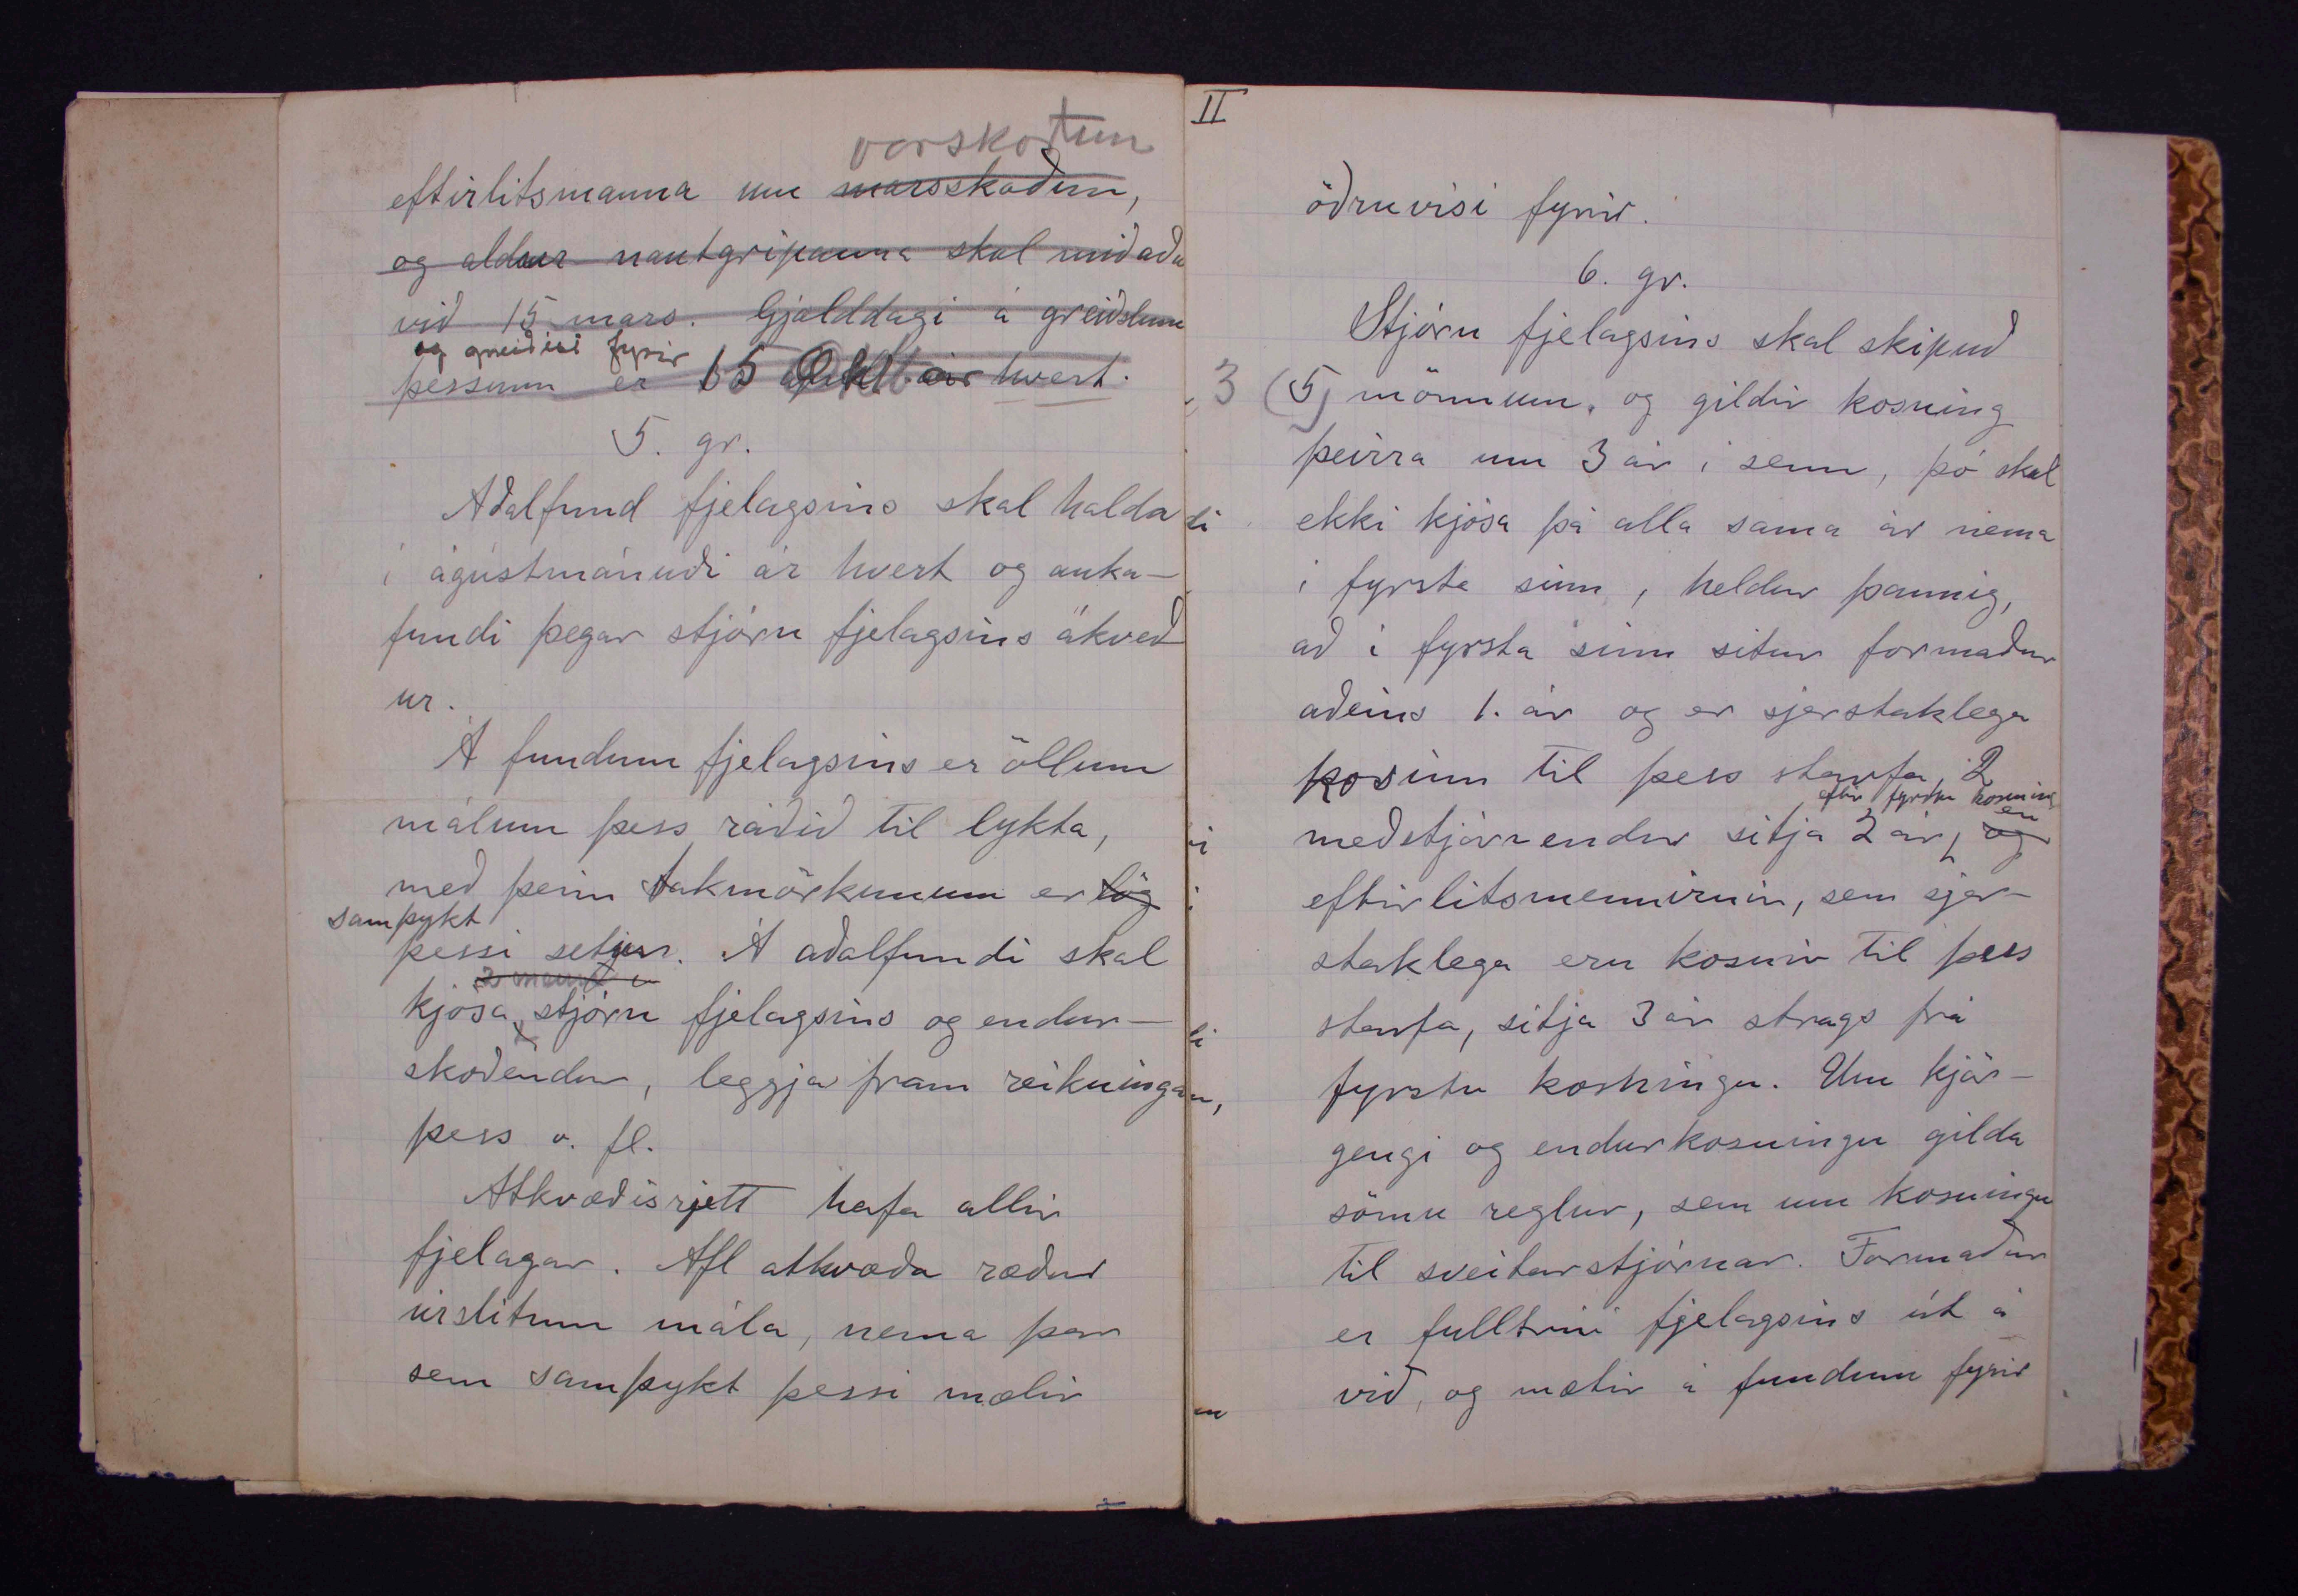 vorskoðun
eftirlitsmanna um marsskoðun,
og aldur nautgripanna skal miðaðu
við 15 mars. Gjalddagi á greiðslum
og greiðist fyrir
þessum er 15 Okt. ár hvert.
5. gr.
Aðalfund fjelagsins skal halda
í ágústmánuði ár hvert og auka-
fundi þegar stjórn fjelagsins ákveð
ur.
Á fundum fjelagsins er öllum
málum þess ráðið til lykta,
með þeim takmörkunum er lög
samþykt
þessi setjur. Á aðalfundi skal
kjósa stjórn fjelagsins og endur-
skoðendur, leggja fram reikningan,
þess o. fl.
Atkvæðisrjett hafa allir
fjelagar. Afl atkvæða ræður
úrslitum mála, nema þar
sem samþykt þessi mælir
II
öðruvísi fyrir.
6. gr.
Stjórn fjelagsins skal skipuð
3 (5) mönnum, og gildir kosning
þeirra um 3 ár í senn, þó skal
ekki kjósa þá alla sama ár nema
í fyrsta sinn, heldur þannig,
að í fyrsta sinn situr formaður
aðeins 1. ár og er sjerstaklega
kosinn til þess starfa, 2
eftir fyrstu kosning
en
meðstjórnendur sitja 2 ár, og
eftirlitsmennirnir, sem sjer-
staklega eru kosnir til þess
starfa, sitja 3 ár strags frá
fyrstu kosningu. Um kjör-
gengi og endurkosningu gilda
sömu reglur, sem um kosningu
til sveitarstjórnar. Formaður
er fulltrúi fjelagsins út á
við, og mætir á fundum fyrir